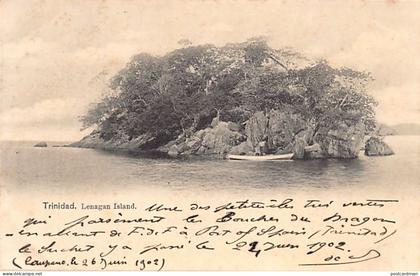 Trinidad. Lenagan Island. Une des petites îles très vertes
qui parsèment les Bouches du Dragon
en allant de F. de F. à Port of Spain (Trinidad)
le Suchet y a passé le 22 Juin 1902
(Carupano, le 26 Juin 1902)